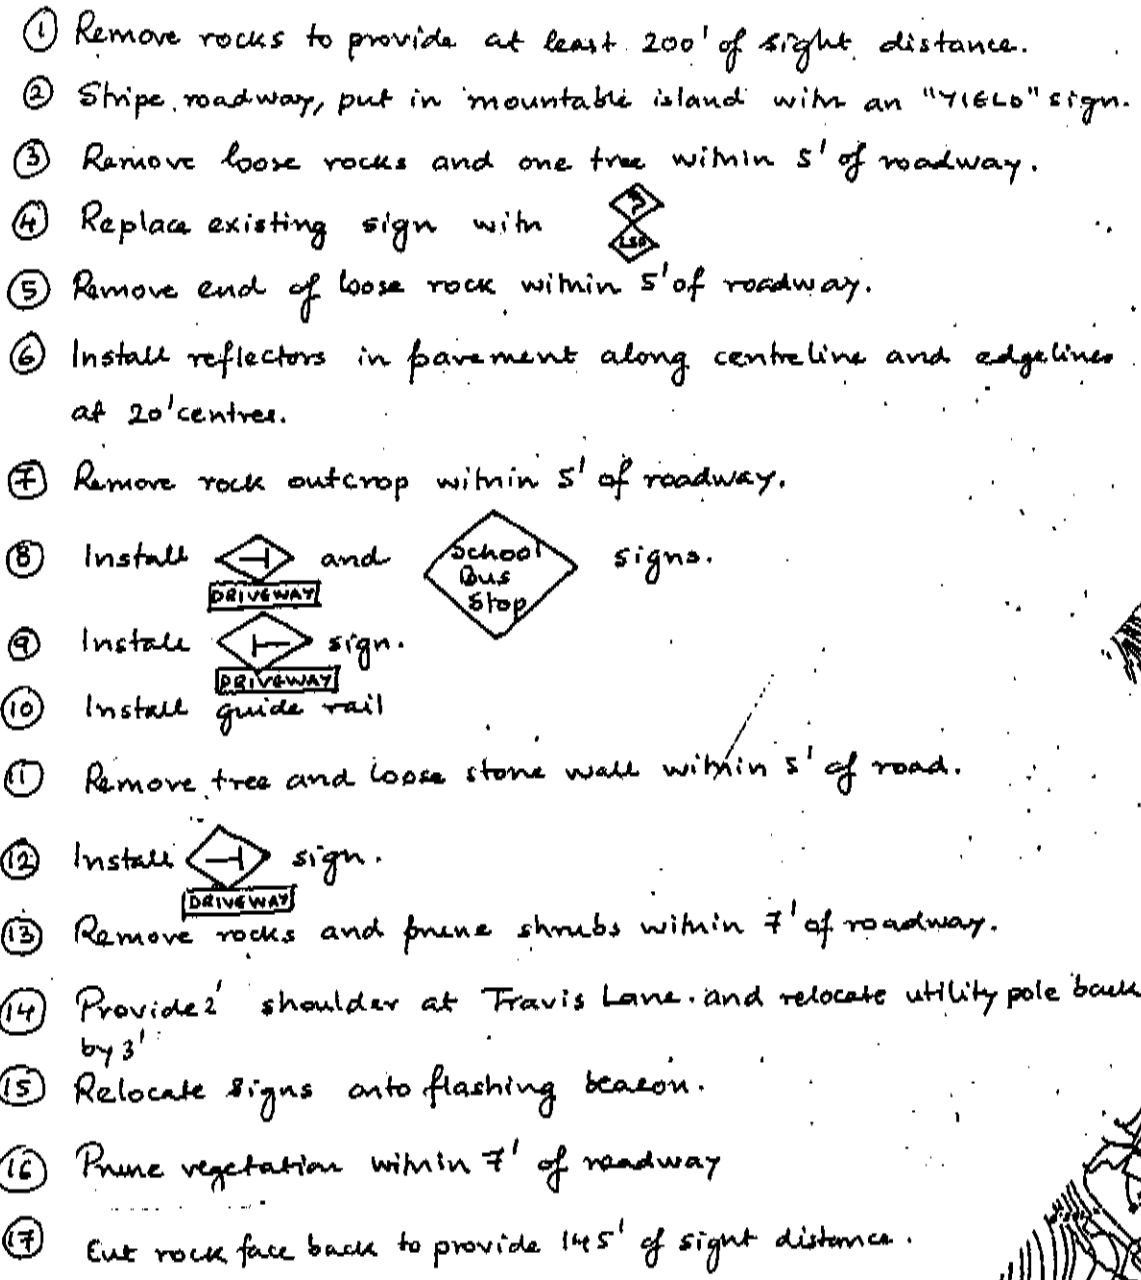 ① Remove rocks to provide at least 200' of sight distance.
② Stripe roadway, put in mountable island with an "YIELD" sign.
③ Remove loose rocks and one tree within 5' of roadway.
④ Replace existing sign with
⑤ Remove end of loose rock within 5' of roadway.
⑥ Install reflectors in pavement along centreline and edgelines
at 20' centres.
⑦ Remove rock outcrop within 5' of roadway.
⑧ Install DRIVEWAY and School Bus Stop signs.
⑨ Install DRIVEWAY sign.
⑩ Install guide rail
⑪ Remove tree and loose stone wall within 5' of road.
⑫ Install DRIVEWAY sign.
⑬ Remove rocks and prune shrubs within 7' of roadway.
⑭ Provide 2' shoulder at Travis Lane. and relocate utility pole back
by 3'
⑮ Relocate signs onto flashing beacon.
⑯ Prune vegetation within 7' of roadway
⑰ Cut rock face back to provide 145' of sight distance.